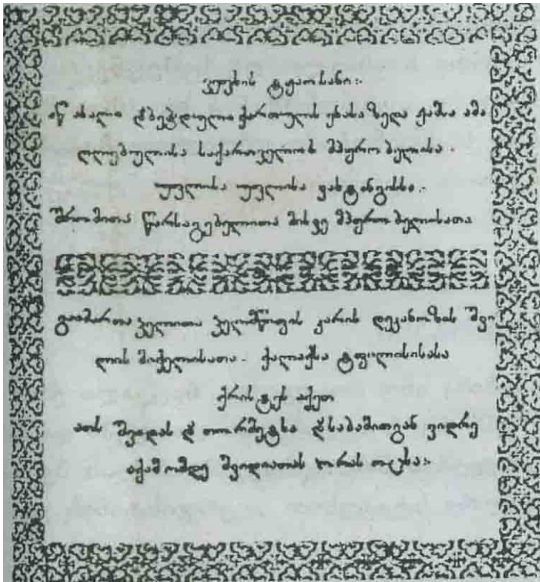 ვეფხის ტყაოსანი:
აწ ახალი დბეჭდული ქართულს ენასა ზედა ჟამსა ამა
ღლებულისა საქართველოს მპყრობელისა.
უფლისა უფლისა ვახტანგისსა:
შრომითა წარსაგებელითა მისვე მპყრობელისათა
გაიმართა ჴელითა ჴელმწიფის კარის დეკანოზის შვი
ლის მიქელისათა. ქალაქსა ტფილისისასა
ქრისტეს აქეთ
ათს შვიდას დ თორმეტსა დსაბამითგან ვიდრე
აქამომდე შვიდიათას ორას ოცსა: